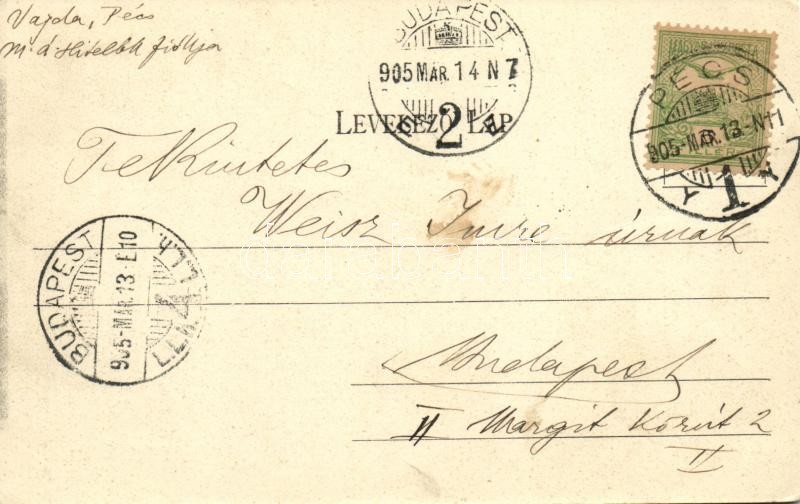 Vajda, Pécs
BUDAPEST
905 MÁR. 14 N 7
2
LEVELEZŐ LAP
PÉCS
905-MÁR.13-N11
1
Tekintetes
Weisz Imre úrnak
BUDAPEST
905-MÁR.13-E10
Budapest
II Margit Körút 2
II